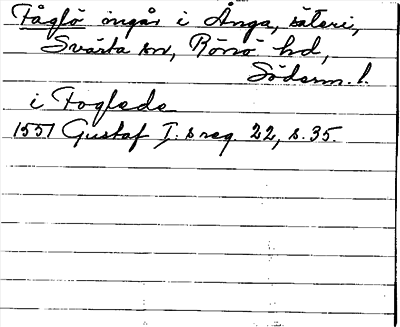 Fåglö ingår i Ånga, säteri,
Svärta sn, Rönö hd,
Söderm. l.
i Foglede
1551 Gustaf I:s reg 22, s. 35.